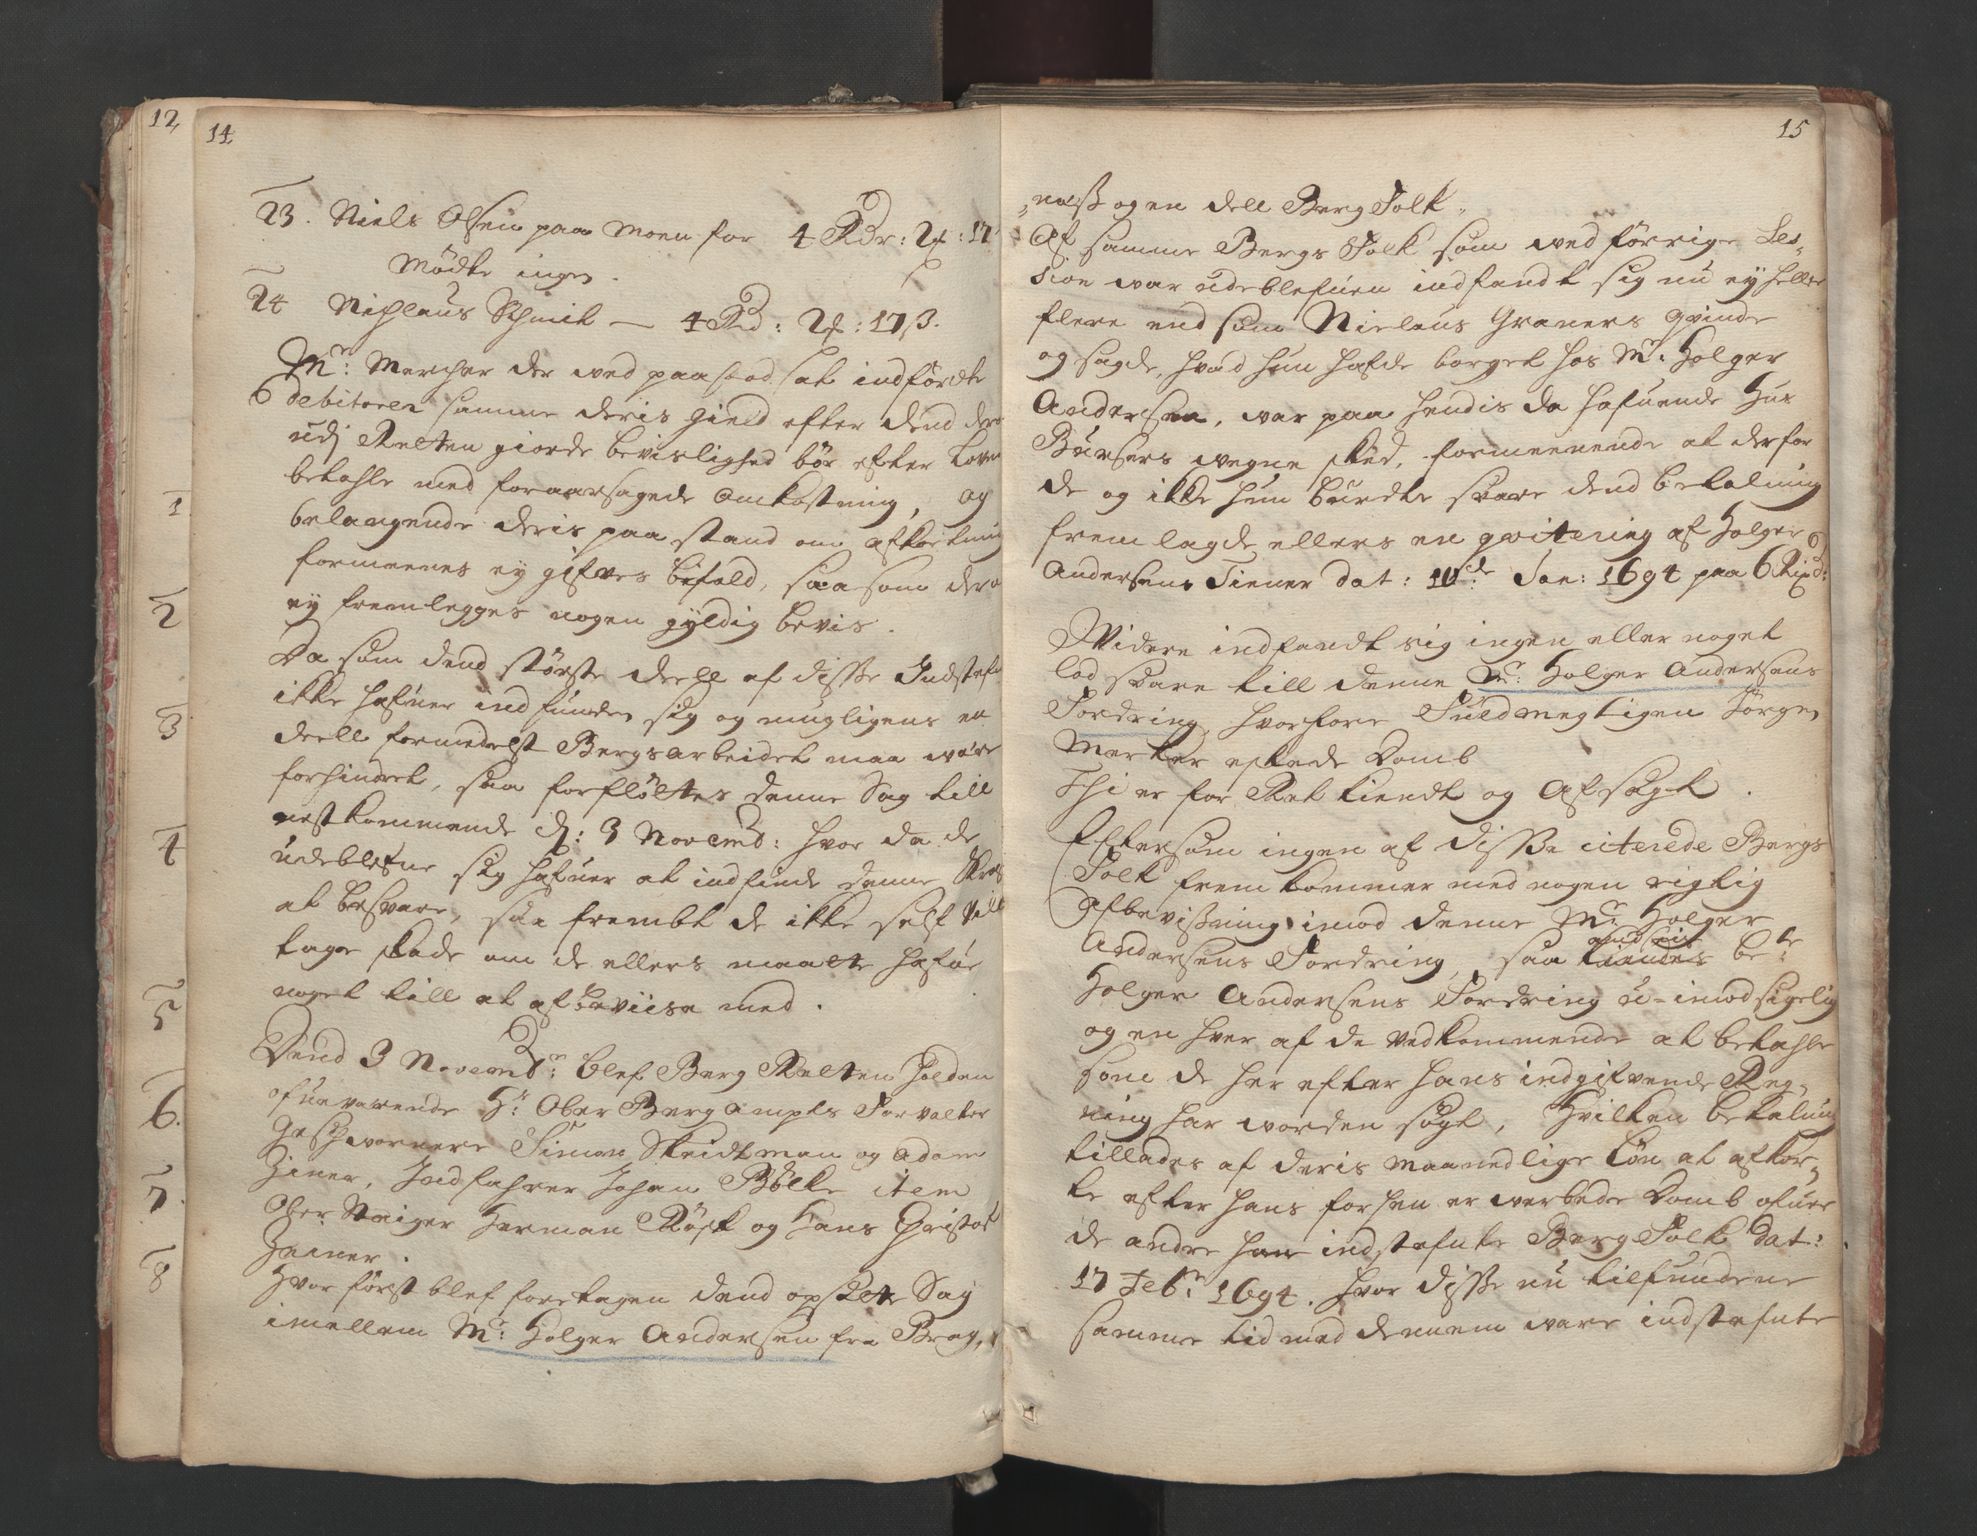 12
14
23. Niels Olsen paa Moen for 4 Rdr: 2 ¤: 17
Mødte ingen.
24 Nichlaus Schmit — 4 Rd: 2 ¤: 17 ß.
Mr: Mercher der ved paastod at indførdte
6 debitorer samme deris gield efter dend der
udj Retten giorde bevislighed bør efter Loven
betahle med foraarsagede Omkostning, og
belangende deris paastand om afkortning
formeenes ey gifves bifald, saasom der
ey fremlegges nogen gyldig bevis.
Da som dend største deell af disse Indstefn
ikke hafuer indfunden sig og mugligens en
deell formedelst Bergsarbeidet maa være
forhindret, saa forfløttes denne Sag till
nestkommende d: 3 Novemb: hvor da de
udeblefne sig hafuer at indfinde denne
at besvare, saa frembt de ikke self vill
tage skade om de ellers maatte hafue
noget till at afbeviise med.
Dend 3 Novembr: blef Berg Retten holden
ofuerværende Hr: Ober Berg Ampts Forvalter
Geschwornere Simon Skeidtman og Adam
Ziener, Indfahrer Johan Bölke item
Ober Steiger Herman Röst og Hans Christof
Zeiner.
Hvor først blef foretagen dend opsætte Sag
imellem Mr: Holger Andersen fra Brag,
1
2
3
4
5
6.
7.
8
15
næss og en dell Berg Folk.
Af samme Bergs Folk som ved forrige Ses-
sion var udeblefuen indfandt sig nu ey heller
flere end som Nielaus Graners Qvinde
og sagde, hvad hun hafde borget hos Mr: Holger
Andersen, var paa hendis da hafuende Hus
Bursers vegne skeed, formeenende at derfor
de og ikke hun burdte svare dend betalning
fremlagde ellers en qvittering af Holger
Andersens Tiener dat: 10de Jan: 1694 paa 6 Rixd:
Widere indfandt sig ingen eller noget
lod svare till denne Mr: Holger Andersens
Fordring, hvorfore Fuldmegtigen Jørgen
Merker eskede Domb
Thi er for Ret kiendt og Afsagt.
Eftersom ingen af disse citerede Bergs
Folk fremkommer med nogen rigtig
Afbevissning imod denne Mr: Holger
Andersens Fordring, saa kiendes be:te
Holger Andersens Fordring u-imodsigelig
og en hver af de vedkommende at betahle
som de her efter hans indgifvende Reg-
ning har worden søgt, Hvilken betalning
tillades af deris maanedlige Løn at afkor-
te efter hans forhen erwerbede Domb ofuer
de andre hans indstefnte Berg Folk dat:
17 Febr: 1694. hvor disse nu tilfundene
samme tid med dennem vare indstefnte